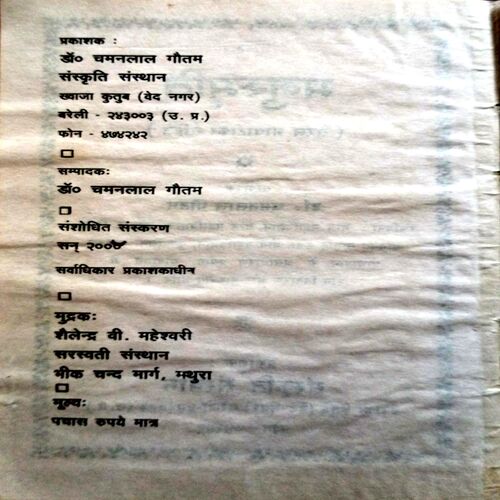 प्रकाशक :
डॉ० चमनलाल गौतम
संस्कृति संस्थान
ख्वाजा कुतुब (वेद नगर)
बरेली - २४३००३ (उ. प्र.)
फोन - ४७४२४२
सम्पादक:
डॉ० चमनलाल गौतम
संशोधित संस्करण
सन् २००८
सर्वाधिकार प्रकाशकाधीन
मुद्रक:
शैलेन्द्र वी. महेश्वरी
सरस्वती संस्थान
भीक चन्द मार्ग, मथुरा
मूल्य:
पचास रुपये मात्र